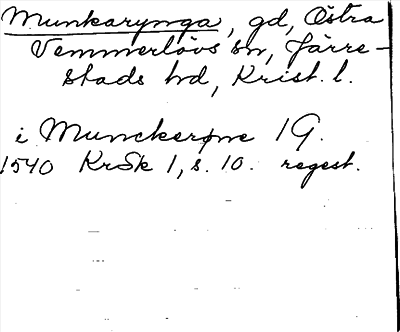 Munkarynga, gd, Östra
Vemmerlövs sn, Järre-
stads hd, Krist. l.
i Munckerøne 1 G.
1540 KrSk 1, s. 10. regest.